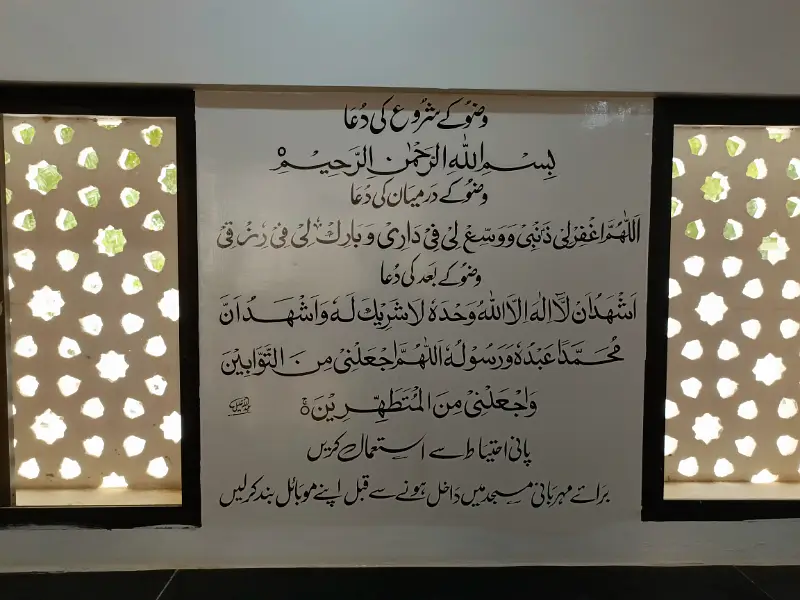 وضو کے شروع کی دُعا
بِسْمِ اللهِ الرَّحْمٰنِ الرَّحِيْمِ
وضو کے درمیان کی دُعا
اَللّٰهُمَّ اغْفِرْلِىْ ذَنْبِىْ وَوَسِّعْ لِىْ فِىْ دَارِىْ وَبَارِكْ لِىْ فِىْ رِزْقِىْ
وضو کے بعد کی دُعا
اَشْهَدُ اَنْ لَّآ اِلٰهَ اِلَّا اللهُ وَحْدَهٗ لَا شَرِيْكَ لَهٗ وَاَشْهَدُ اَنَّ
مُحَمَّدًا عَبْدُهٗ وَرَسُوْلُهٗ اَللّٰهُمَّ اجْعَلْنِىْ مِنَ التَّوَّابِيْنَ
وَاجْعَلْنِىْ مِنَ الْمُتَطَهِّرِيْنَ
پانی احتیاط سے استعمال کریں
برائے مہربانی مسجد میں داخل ہونے سے قبل اپنے موبائل بند کرلیں